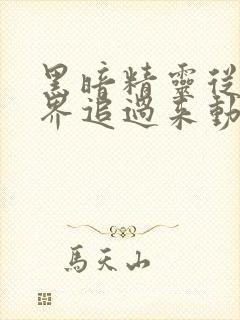 黑暗精靈從
界追過來動
馬天山